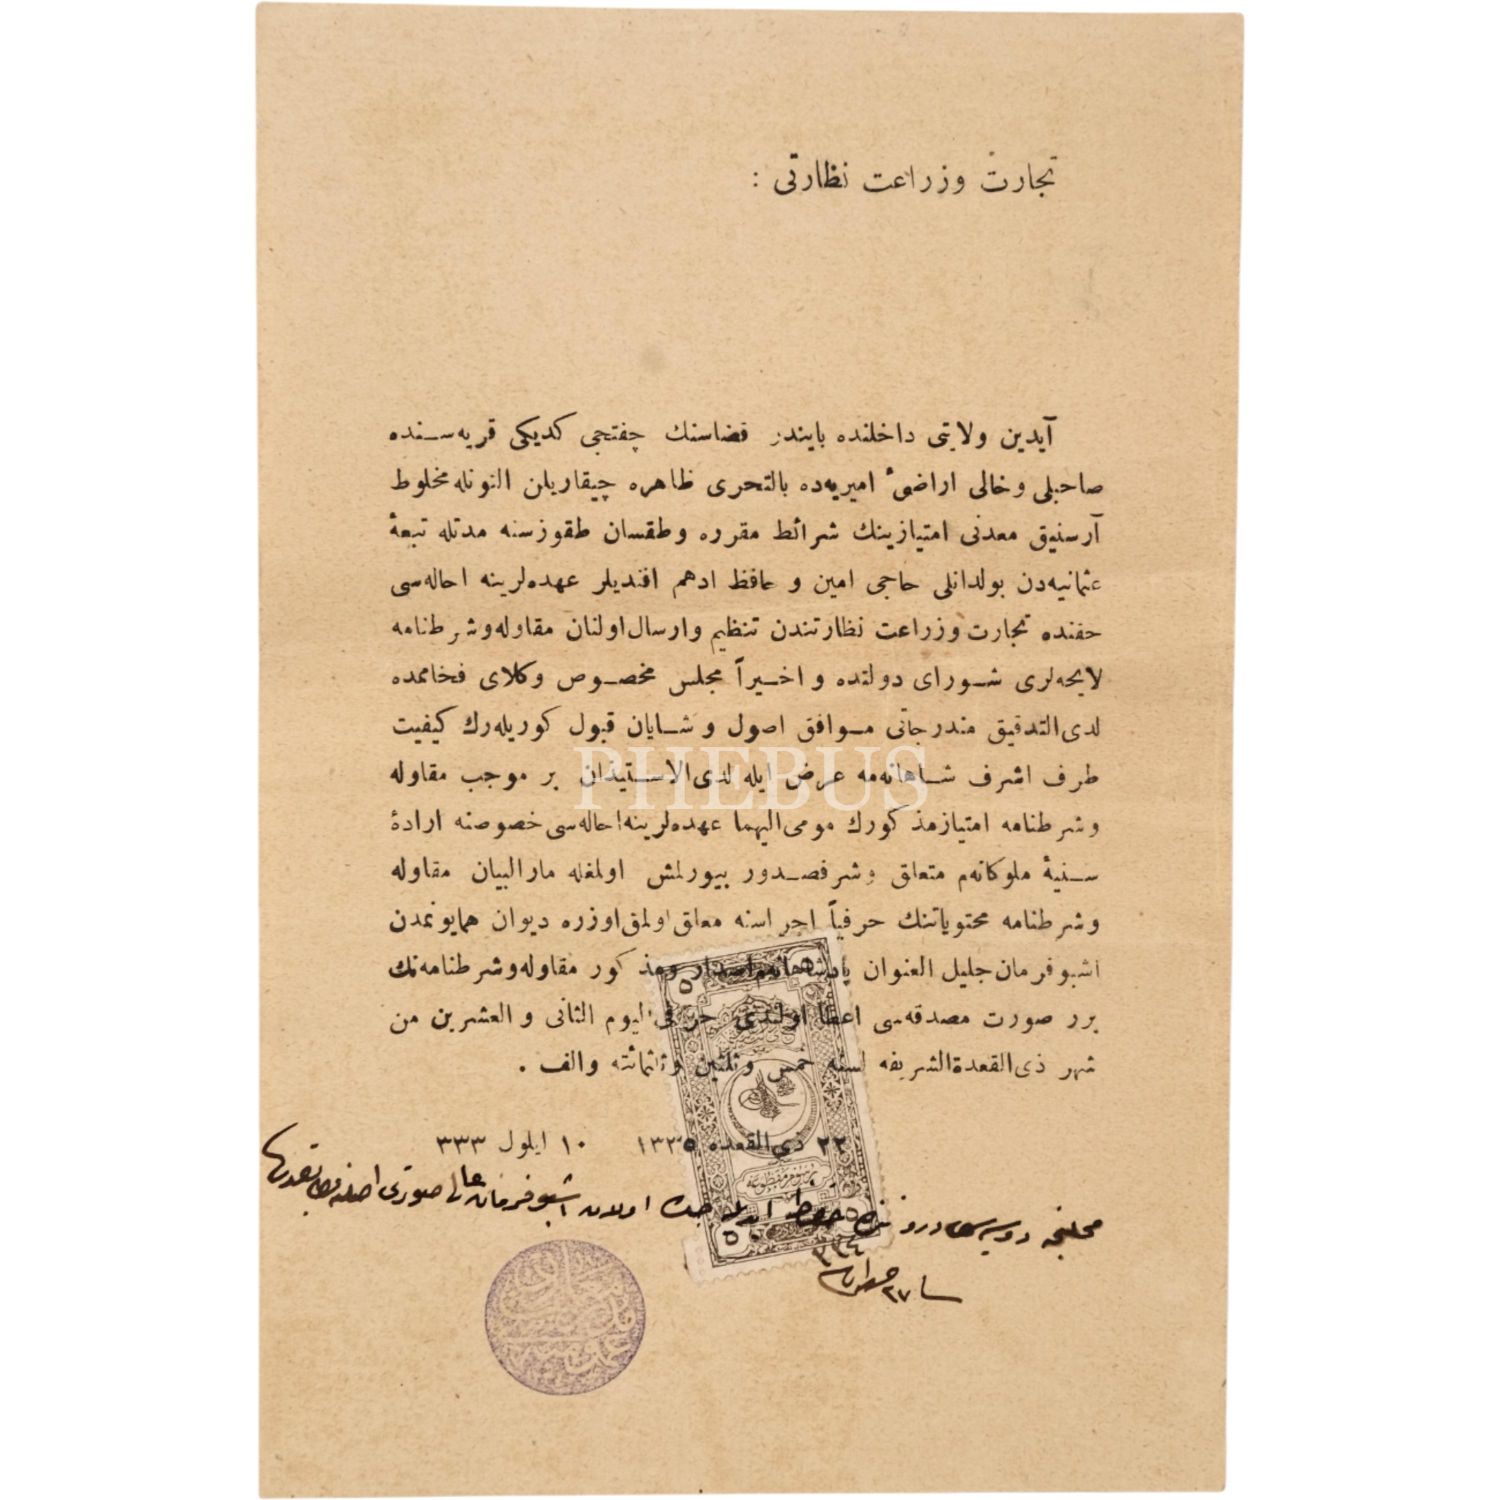 تجارت و زراعت نظارتی :
آیدین ولایتی داخلنده بایندر قضاسنك چفتجی كدیكی قریه‌سنده
صاحبلی و خالی اراضئ امیریه‌ده بالتحری ظاهره چیقاریلن التونله مخلوط
آرسنیق معدنی امتیازینك شرائط مقرره و طقسان طقوز سنه مدتله تبعۀ
عثمانیه‌دن بولدانلی حاجی امین و حافظ ادهم افندیلر عهده‌لرینه احاله‌سی
حقنده تجارت و زراعت نظارتندن تنظیم و ارسال اولنان مقاوله و شرطنامه
لایحه‌لری شورای دولتده و اخیراً مجلس مخصوص وكلای فخاممده
لدی التدقیق مندرجاتی موافق اصول و شایان قبول كوریله‌رك كیفیت
طرف اشرف شاهانه‌مه عرض ایله لدی الاستیذان بر موجب مقاوله
و شرطنامه امتیاز مذكورك مومی الیهما عهده‌لرینه احاله‌سی خصوصنه ارادۀ
سنیۀ ملوكانه‌م متعلق و شرفصدور بیورلمش اولمغله مار البیان مقاوله
و شرطنامه محتویاتنك حرفیاً اجراسنه معلق اولمق اوزره دیوان همایونمدن
اشبو فرمان جلیل العنوان پادشاهانه‌م اصدار و مذكور مقاوله و شرطنامه‌نك
برر صورت مصدقه‌سی اعطا اولندی. حرر فی الیوم الثانی و العشرین من
شهر ذی القعدة الشریفه لسنه خمس و ثلثین و ثلثمائه و الف .
٢٢ ذی القعده ١٣٣٥ ١٠ ایلول ٣٣٣
اولان اشبو فرمان عالی صورتی اصلنه
٢٧ حزیران ٣٣٤
PHEBUS